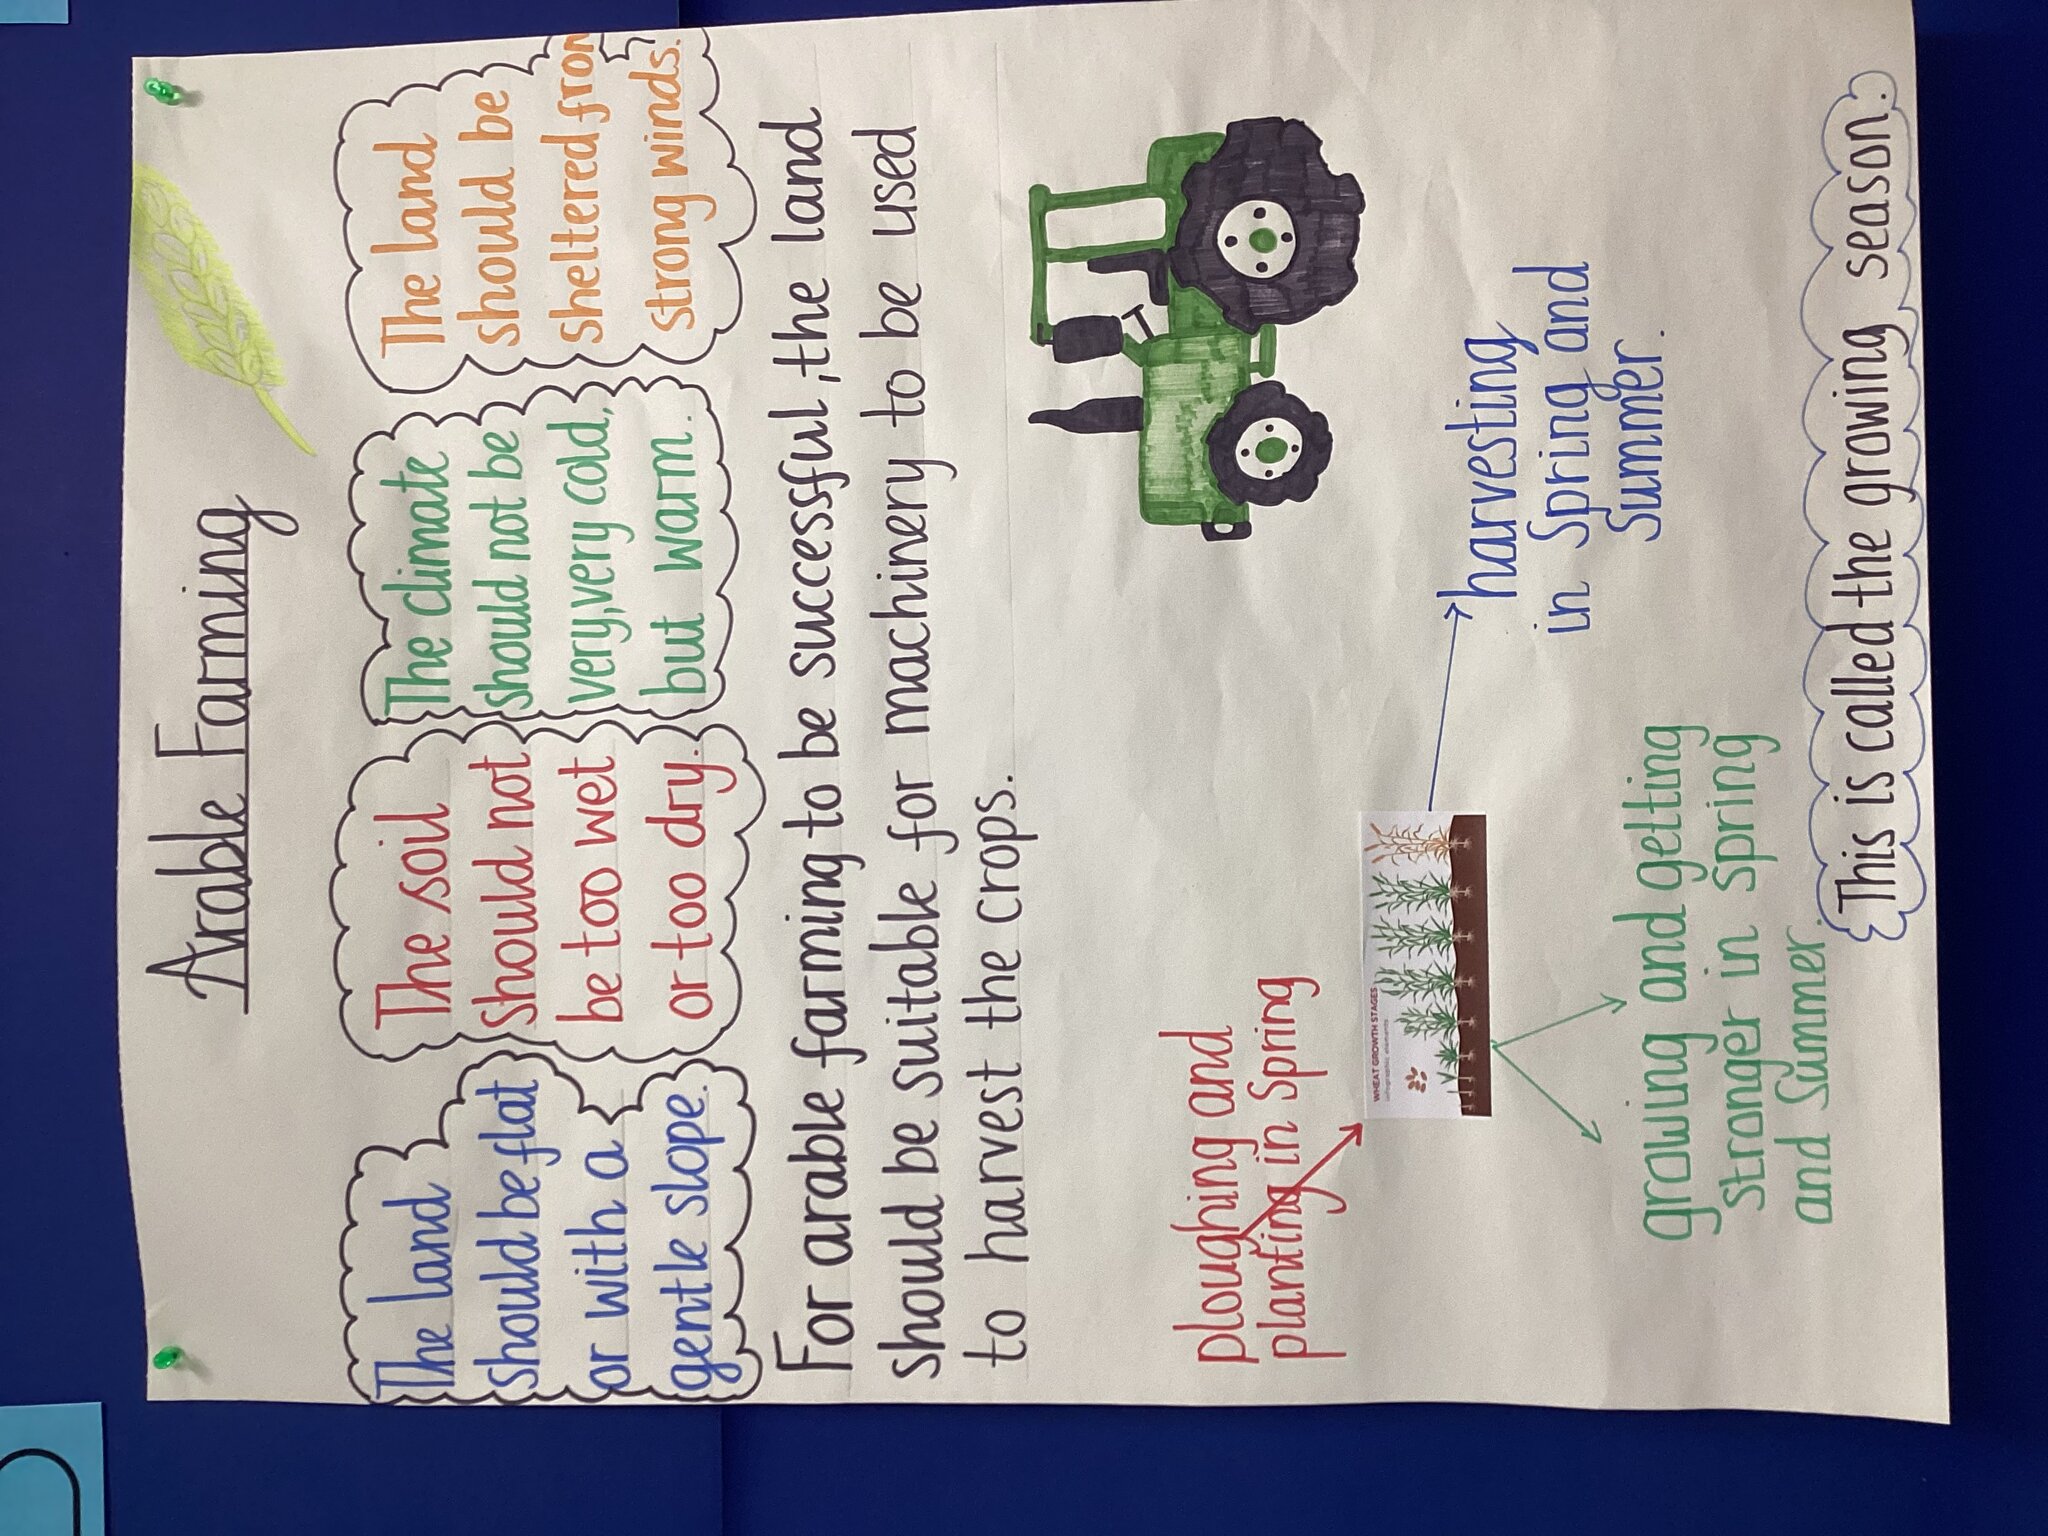 Arable Farming
The land
should be flat
or with a
gentle slope.
The soil
should not
be too wet
or too dry.
The climate
should not be
very, very cold,
but warm.
The land
should be
sheltered from
strong winds.
For arable farming to be successful, the land
should be suitable for machinery to be used
to harvest the crops.
ploughing and
planting in Spring
WHEAT GROWTH STAGES
harvesting
in Spring and
Summer.
growing and getting
stronger in Spring
and Summer.
This is called the growing season.